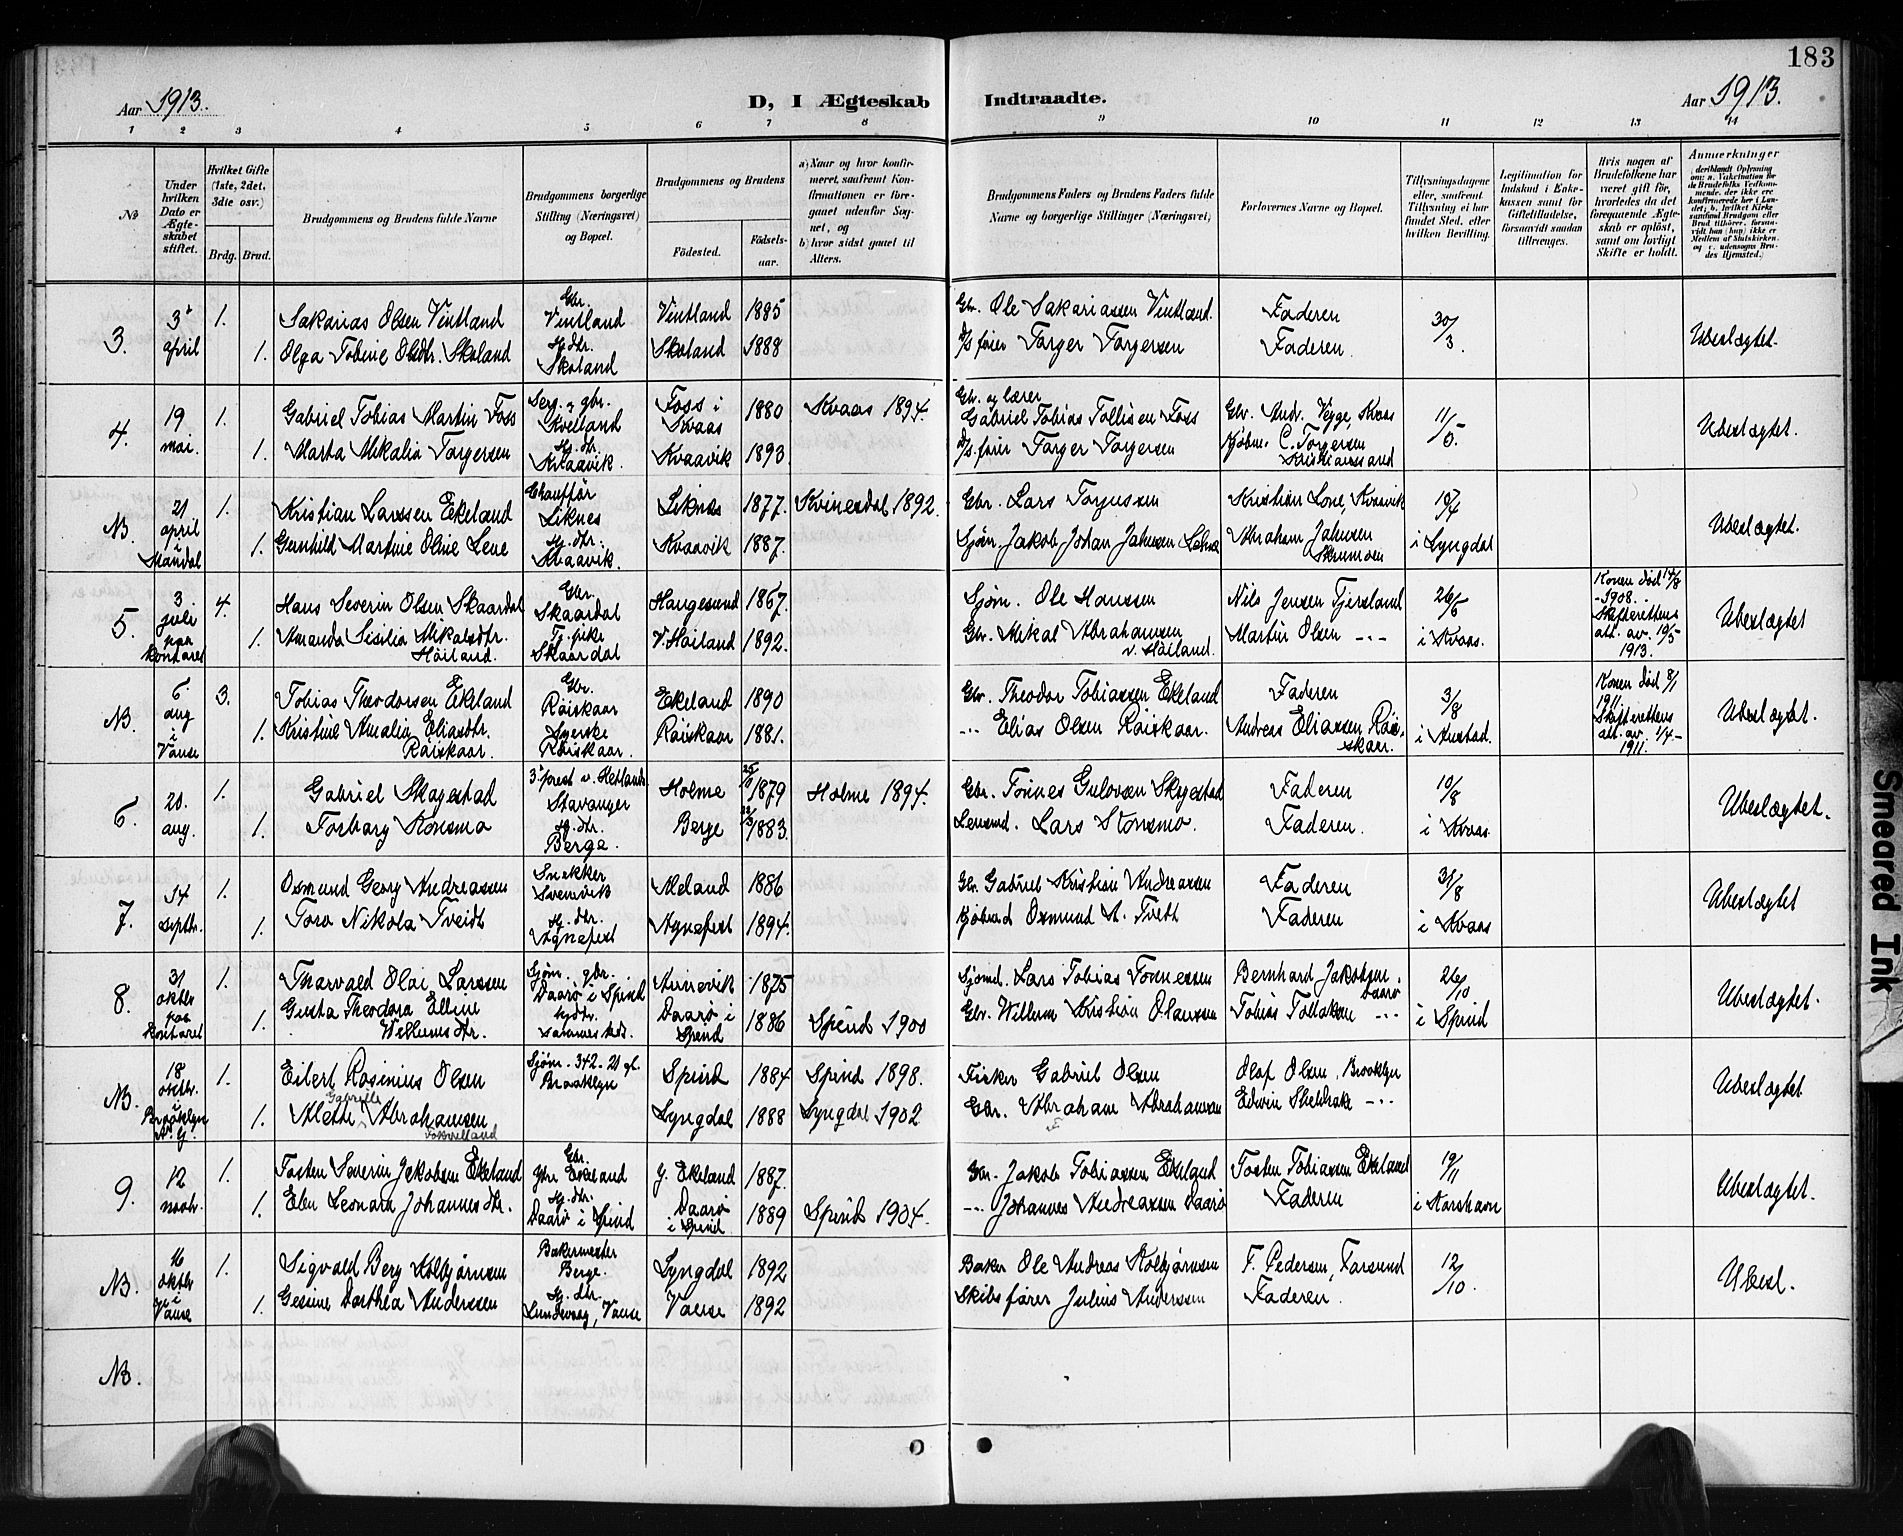 183
Aar 1913.
D, I Ægteskab Indtraadte.
Aar 1913.
1 2 3 4 5 6 7 8 9 10 11 12 13 14
No
Under hvilken Dato er Ægteskabet stiftet.
Hvilket Gifte (1ste, 2det, 3die osv.)
Brdg. Brud.
Brudgommens og Brudens fulde Navne
Brudgommens borgerlige Stilling (Næringsvei) og Bopæl.
Brudgommens og Brudens
Födested.
Födselsaar.
a) Naar og hvor konfirmeret, samframt Konfirmationen er foregaaet udenfor Sognet, og
b) hvor sidst gaaet til Alters.
Brudgommens Faders og Brudens Faders fulde Navne og borgerlige Stillinger (Næringsvei)
Forlovernes Navne og Bopæl.
Tillysningsdagene eller, samframt Tillysning ei har fundet Sted, efter hvilken Bevilling.
Legitimation for Indskud i Enkekassen samt for Giftetilladelse, forsaavidt saadan tiltrænges.
Hvis nogen af Brudefolkene har været gift før, hvorledes da det foregaaende Ægteskab er opløst, samt om lovligt Skifte er holdt.
Anmerkninger
3. 3' april 1. Sakarias Olsen Vintland Gbr. Vintland Vintland 1885 Gbr. Ole Sakariassen Vintland. Faderen 30/3. Ubeslægtet.
1. Olga Tobine Olsdtr. Skoland Hj. dtr. Skoland Skoland 1888 D/s fører Torger Torgersen Faderen.
4. 19 mai. 1. Gabriel Tobias Martin Foss Serg. og gbr. Kvelland Foss i Kvaas 1880 Kvaas 1894. Gbr. og lærer Gabriel Tobias Tollisen Foss Gbr. Andr. Vegge, Kvaas 11/5. Ubeslægtet.
1. Marta Mikalia Torgersen Hj. dtr. Kvaavik. Kvaavik 1893. D/s fører Torger Torgersen Kjöbm. C. Torgersen Kristianssand
NB. 21 april i Mandal 1. Kristian Larssen Ekeland Chauffør Liknes Liknes 1877. Kvinesdal 1892. Gbr. Lars Torjussen Kristian Lone, Kvaavik i Lyngdal Ubeslægtet.
1. Gunhild Martine Oline Lene Hj. dtr. Kvaavik. Kvaavik 1887. Sjøm. Jakob Johan Jahnsen Abraham Jahnsen
5. 3 juli paa kontoret 4. Hans Severin Olsen Skaardal Gbr. Skaardal Haugesund 1867. Sjøm. Ole Hanssen Nils Jensen Tjersland 26/6 i Kvaas. Konen død 14/8 - 1908. Skifterettens att. av. 19/5 1913. Ubeslægtet
1. Amanda Sisilia Mikalsdtr. Høiland. Tj. pike Skaardal V. Høiland 1892. Gbr. Mikal Abrahamsen V. Høiland. Martin Olsen -"-
NB. 6. aug i Vanse 3. Tobias Theodorsen Ekeland Gbr. Røiskaar Ekeland 1890 Gbr. Theodor Tobiassen Ekeland Faderen 3/8 i Austad. Konen død 8/1 1911. Skifterettens att. av. 1/4 - 1911. Ubeslægtet.
1. Kristine Amalia Eliasdtr. Røiskaar. Syerske Røiskaar. Røiskaar 1881. -"- Elias Olsen Røiskaar. Andreas Eliassen Røiskaar.
6. 20. aug. 1. Gabriel Skagestad 3' prest v. Hetland Stavanger Holme 1879 Holme 1894. Gbr. Tönnes Gulovsen Skagestad Faderen 10/8 i Kvaas. Ubeslægtet.
1. Torborg Konsmo Hj. dtr. Berge. Berge 1883. Lensmd. Lars Konsmo. Faderen.
7. 14 septbr. 1. Osmund Georg Andreassen Snekker Svenevik Aleland 1886 Gbr. Gabriel Kristian Andreassen Faderen 31/8 i Kvaas Ubeslægtet
1. Tora Nikola Tveidt Hj. dtr. Agnefest Agnefest 1894. Kjöbmd Osmund A. Tveth Faderen
8. 31 oktbr paa kontoret 1. Thorvald Olai Larssen Sjøm. gbr. Daarø i Spind Aunevik 1875 Sjømd. Lars Tobias Tønnessen Bernhard Jakobsen, Daarø 26/10 i Spind Ubeslægtet.
1. Gusta Theodora Elline Willumsdtr. Daarø i Spind 1886 Spind 1900 Gbr. Willum Kristian Olaussen Tobias Tollaksen -"-
NB. 18 oktbr. i Brooklyn N.Y. 1. Eilert Rasinius Olsen Sjøm. 342-21 gt. Brooklyn Spind 1884 Spind 1898. Fisker Gabriel Olsen Olaf Olsen, Brooklyn Ubeslægtet
1. Alette Gabrielle Abrahamsen Lyngdal 1888 Lyngdal 1902 Gbr. Abraham Abrahamsen Edwin Sheldrake -"-
9. 12 novbr. 1. Tosten Severin Jakobsen Ekeland Gbr. Ekeland Y. Ekeland 1887. Gbr. Jakob Tobiassen Ekeland Tosten Tobiassen Ekeland 19/11 i Korshavn Ubeslægtet.
1. Elen Leonara Johannesdtr. Hj. dtr. Daarø i Spind Daarø i Spind 1889 Spind 1904. -"- Johannes Andreassen Daarø Faderen
NB. 16 oktbr i Vanse 1. Sigvald Berg Kolbjørnsen Bakermester Berge. Lyngdal 1892 Baker Ole Andreas Kolbjørnsen F. Pedersen, Farsund 12/10. Ubesl.
1. Gesine Dorthea Anderssen Hj. dtr. Lundevaag, Vanse Vanse 1892 Skibsfører Julius Anderssen Faderen.
NB.
Smeared Ink